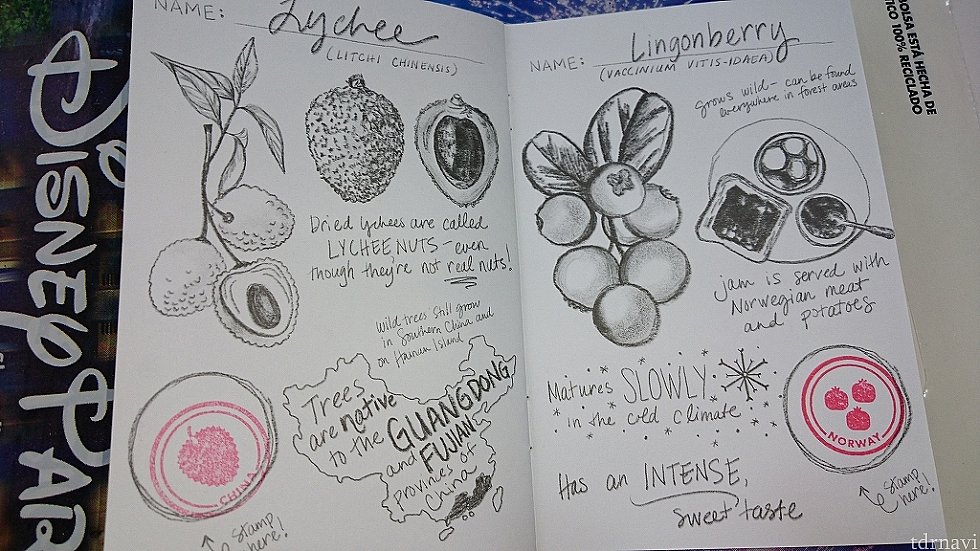 NAME: Lychee
(LITCHI CHINENSIS)
Dried lychees are called
LYCHEE NUTS - even
though they're not real nuts!
Wild trees still grow
in Southern China and
on Hainan Island
Trees
are native
to the GUANGDONG
and FUJIAN
provinces of
China
CHINA
stamp
here!
NAME: Lingonberry
(VACCINIUM VITIS-IDAEA)
grows wild - can be found
everywhere in forest areas
jam is served with
Norwegian meat
and potatoes
Matures SLOWLY
in the cold climate
NORWAY
Has an INTENSE,
sweet taste
stamp
here!
DISNEY PAR
BOLSA ESTÁ HECHA DE
TICO 100% RECICLADO
tdrnavi